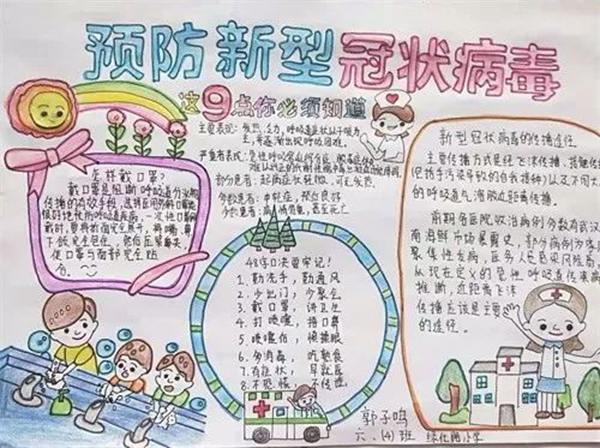 预防新型冠状病毒
这9点你必须知道
主要表现：发热、乏力，呼吸道症状以干咳为
主，并逐渐出现呼吸困难。
严重者表现：急性呼吸窘迫综合征、脓毒症休克
部分患者：起病症状轻微，可无发热。
多数患者：为轻症，预后良好
少数患者：病情危重，甚至死亡
怎样戴口罩？
戴口罩是阻断呼吸道分泌物
传播的有效手段，选择医用外科口罩能
很好地预防呼吸道疾病，一次性口罩
戴时，要将折面完全展开，将嘴、鼻、
下颌完全包住，然后压紧鼻夹，
使口罩与面部完全贴
合。
48字口决要牢记！
1、勤洗手，勤通风
2、少出门，少聚会
3、戴口罩，讲卫生
4、打喷嚏，捂口鼻
5、喷嚏后，慎揉眼
6、勤消毒，吃熟食
7、有症状，早就医
8、不恐慌，不传谣
新型冠状病毒的传播途径。
主要传播方式是经飞沫传播、接触传播
(包括手污染导致的自我接种)以及不同大小
的呼吸道气溶胶近距离传播。
前期各医院收治病例多数有武汉华
南海鲜市场暴露史，部分病例为家庭
聚集性发病，医务人员感染风险高，
从现在定义的急性呼吸道传染病
推断，近距离飞沫
传播应该是主要
的途径。
郭子鸣
六、(4)班
绿化路小学